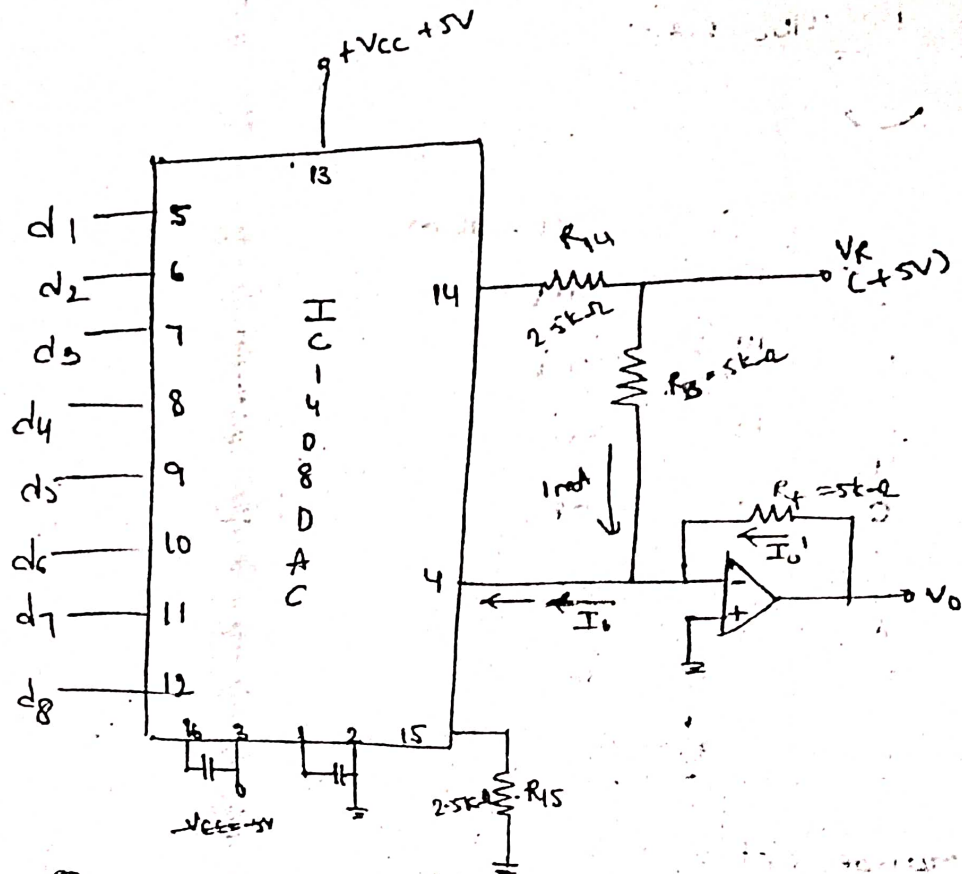 +VCC +5V
13
d1 5
d2 6
d3 7
d4 8
d5 9
d6 10
d7 11
d8 12
I
C
1
4
0
8
D
A
C
14
R14
2.5kΩ
VR
(+5V)
RB = 5kΩ
1mA
Rf = 5kΩ
Io'
4
Io
-
+
Vo
16 3 1 2 15
2.5kΩ R15